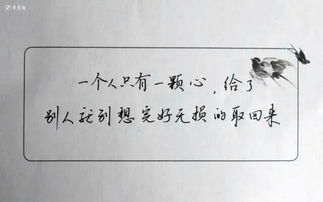 一个人只有一颗心，给了
别人就别想完好无损的取回来